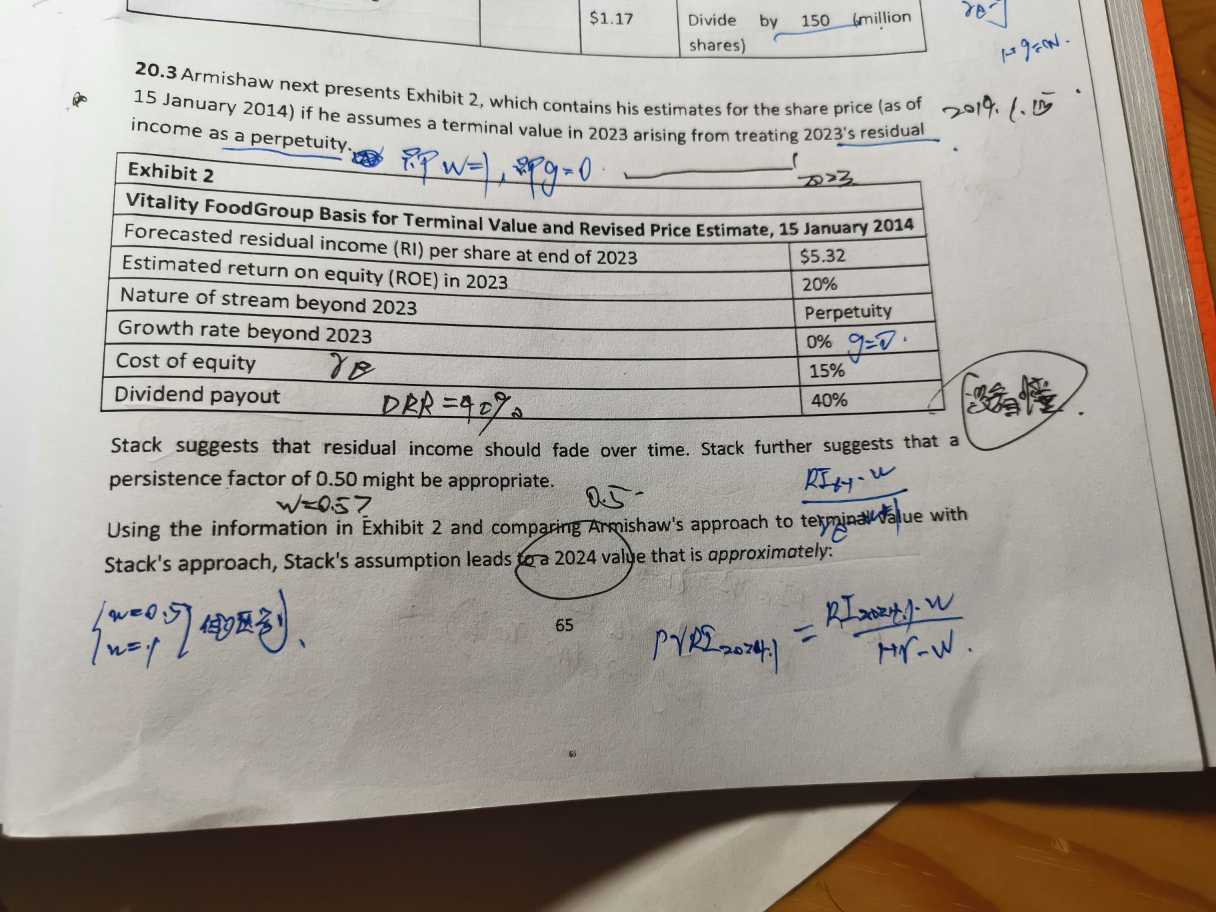 $1.17
Divide by 150 (million
shares)
20.3 Armishaw next presents Exhibit 2, which contains his estimates for the share price (as of
15 January 2014) if he assumes a terminal value in 2023 arising from treating 2023's residual
income as a perpetuity.
即 w=1, 即g=0.
2023
Exhibit 2
Vitality FoodGroup Basis for Terminal Value and Revised Price Estimate, 15 January 2014
Forecasted residual income (RI) per share at end of 2023 $5.32
Estimated return on equity (ROE) in 2023 20%
Nature of stream beyond 2023 Perpetuity
Growth rate beyond 2023 0% g=0.
Cost of equity 15%
Dividend payout DRR=40% 40%
Stack suggests that residual income should fade over time. Stack further suggests that a
persistence factor of 0.50 might be appropriate.
w=0.5?
0.5
Using the information in Exhibit 2 and comparing Armishaw's approach to terminal value with
Stack's approach, Stack's assumption leads to a 2024 value that is approximately:
w=0.5
65